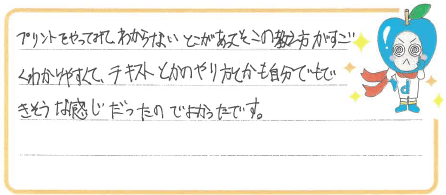 プリントをやってみて、わからないとこがあってそこの教え方がすご
くわかりやすくて、テキストとかのやり方とかも自分でもで
きそうな感じだったのでよかったです。
d